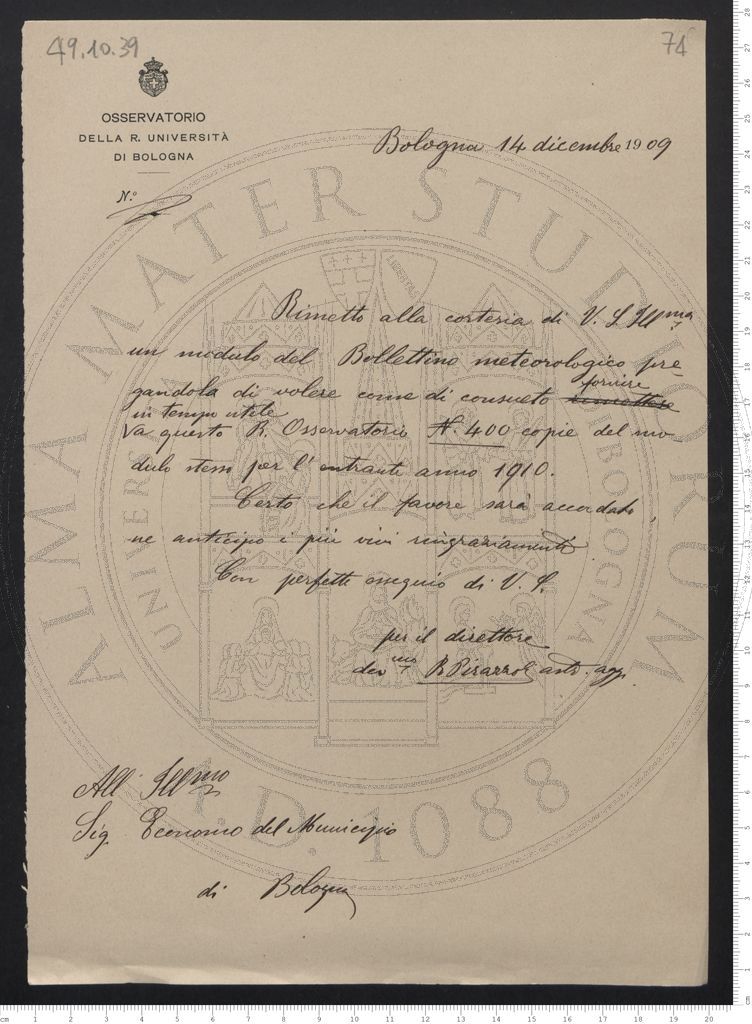 49.10.39
74
OSSERVATORIO
DELLA R. UNIVERSITÀ
DI BOLOGNA
Bologna 14 dicembre 1909
N.°
Rimetto alla cortesia di V. S. Ill ma
un modulo del Bollettino meteorologico pre-
gandola di volere come di consueto fornire
in tempo utile
a questo R. Osservatorio N. 400 copie del mo-
dulo stesso per l'entrante anno 1910.
Certo che il favore sarà accordato,
ne anticipo i più vivi ringraziamenti
Con perfetto ossequio di V. S.
per il direttore
dev mo R Pirazzoli astr. agg.
All Ill mo
Sig. Economo del Municipio
di Bologna
ALMA MATER STUDIORUM
A.D. 1088